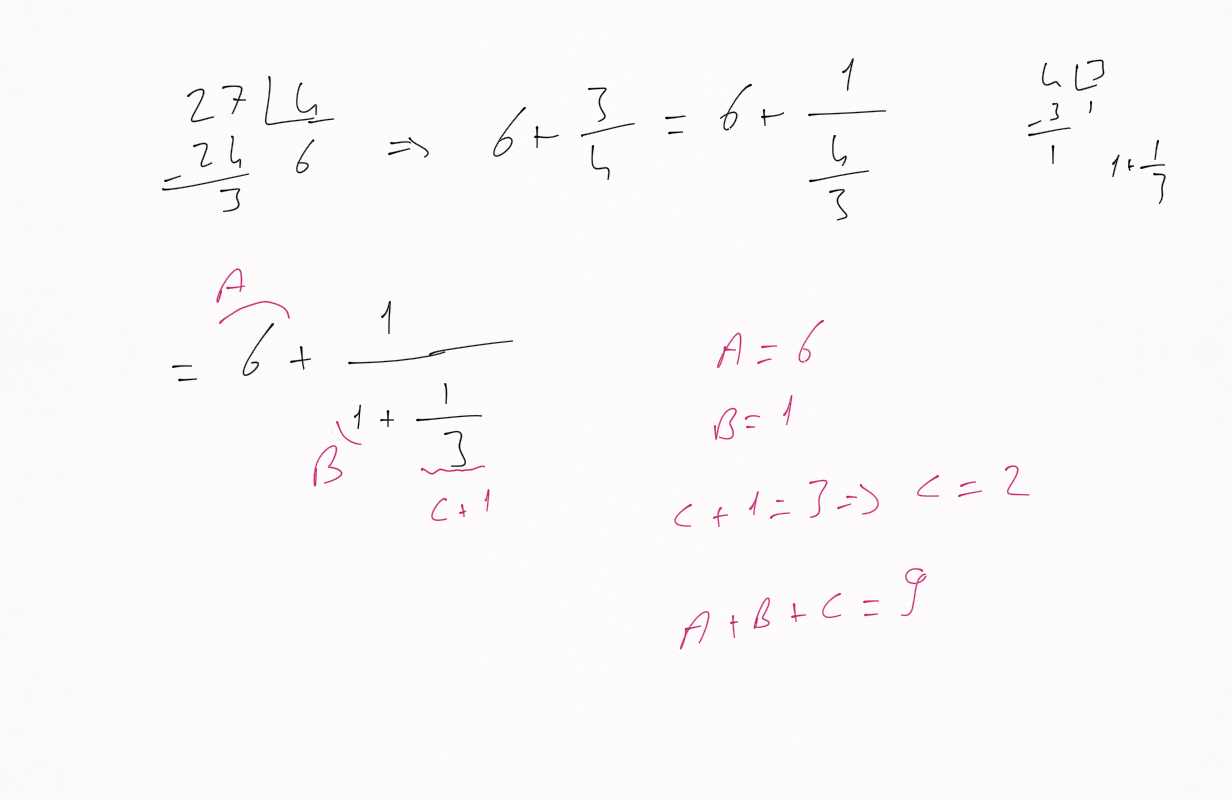 27 | 4
- 24 6
3
⇒ 6 + 3/4 = 6 + 1/(4/3)
4 | 3
- 3 1
1
1 + 1/3
A
= 6 + 1/(1 + 1/3)
B
C + 1
A = 6
B = 1
C + 1 = 3 ⇒ C = 2
A + B + C = 9